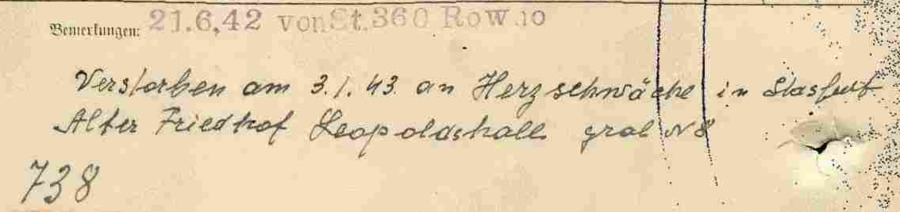 Bemerkungen: 21.6.42 von St.360 Row.10
Verstorben am 3.1.43 an Herzschwäche in Stasfurt
Alter Friedhof Leopoldshall grab N8
738